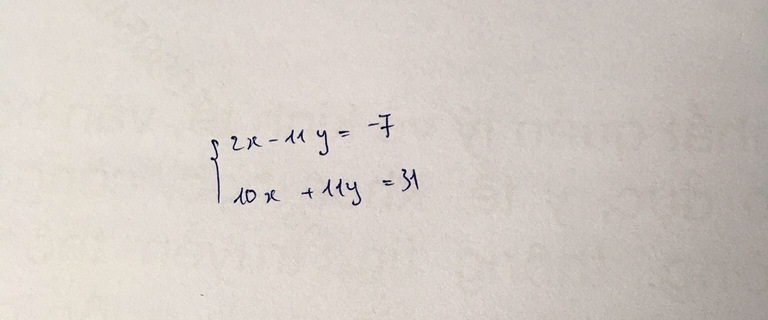 2x - 11y = -7
10x + 11y = 31